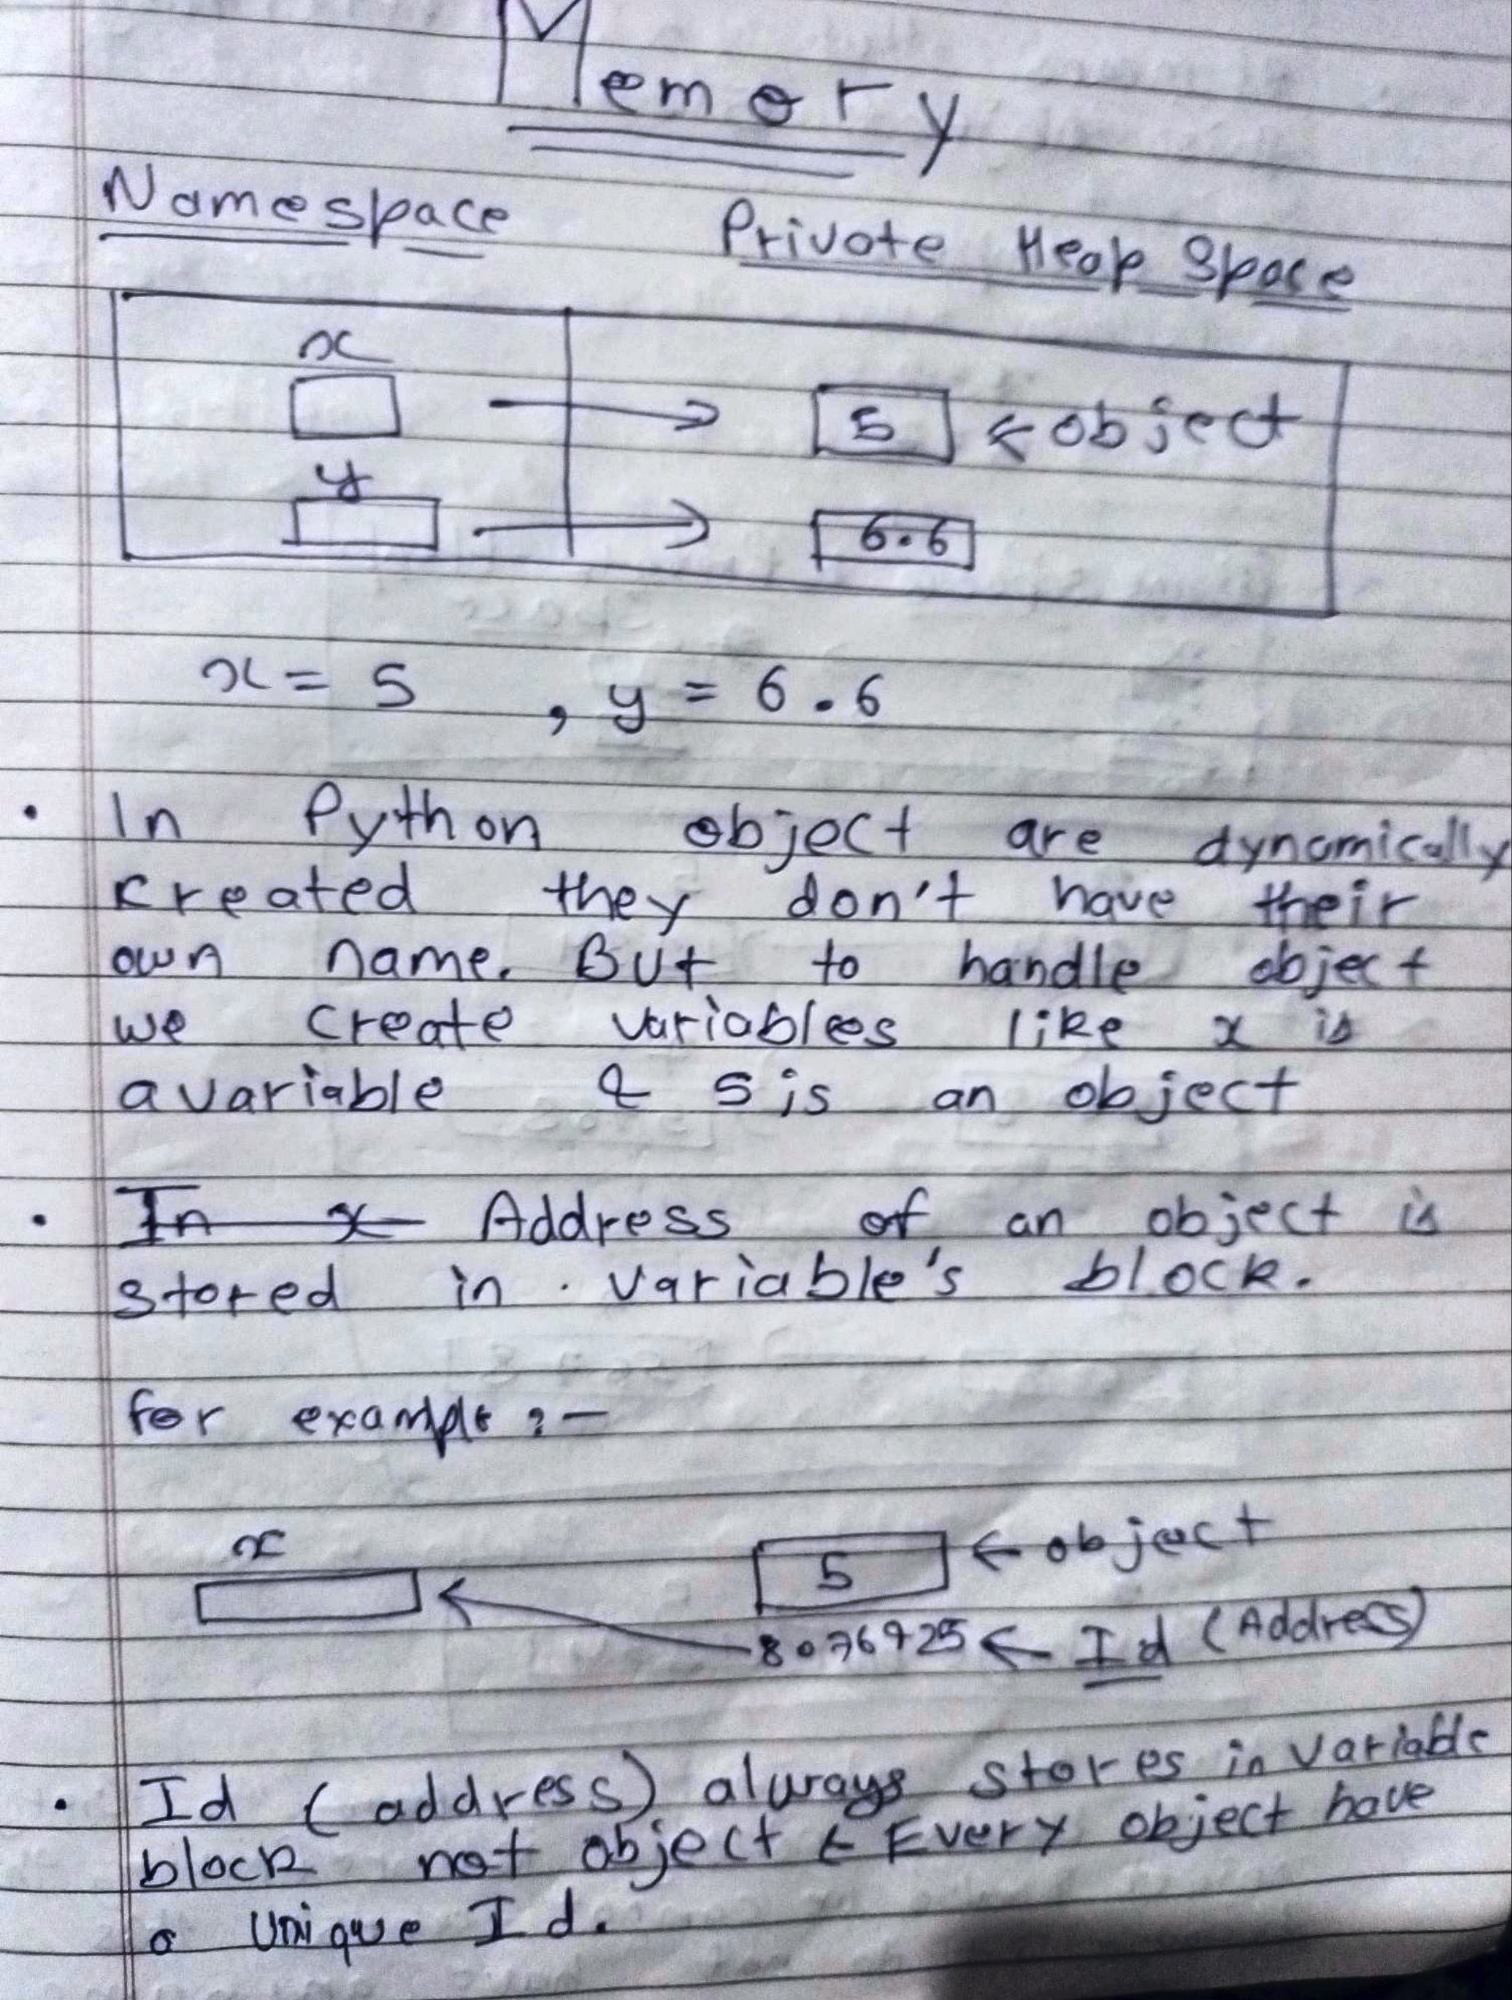 Memory
Namespace Private Heap Space
x
5 ← object
y
6.6
x = 5 , y = 6.6
• In Python object are dynamically
created they don't have their
own name. But to handle object
we create variablees like x is
a variable & 5 is an object
• In x Address of an object is
stored in variable's block.
for example :-
x
5 ← object
8076925 ← Id (Address)
• Id (address) always stores in variable
block not object & Every object have
a Unique Id.